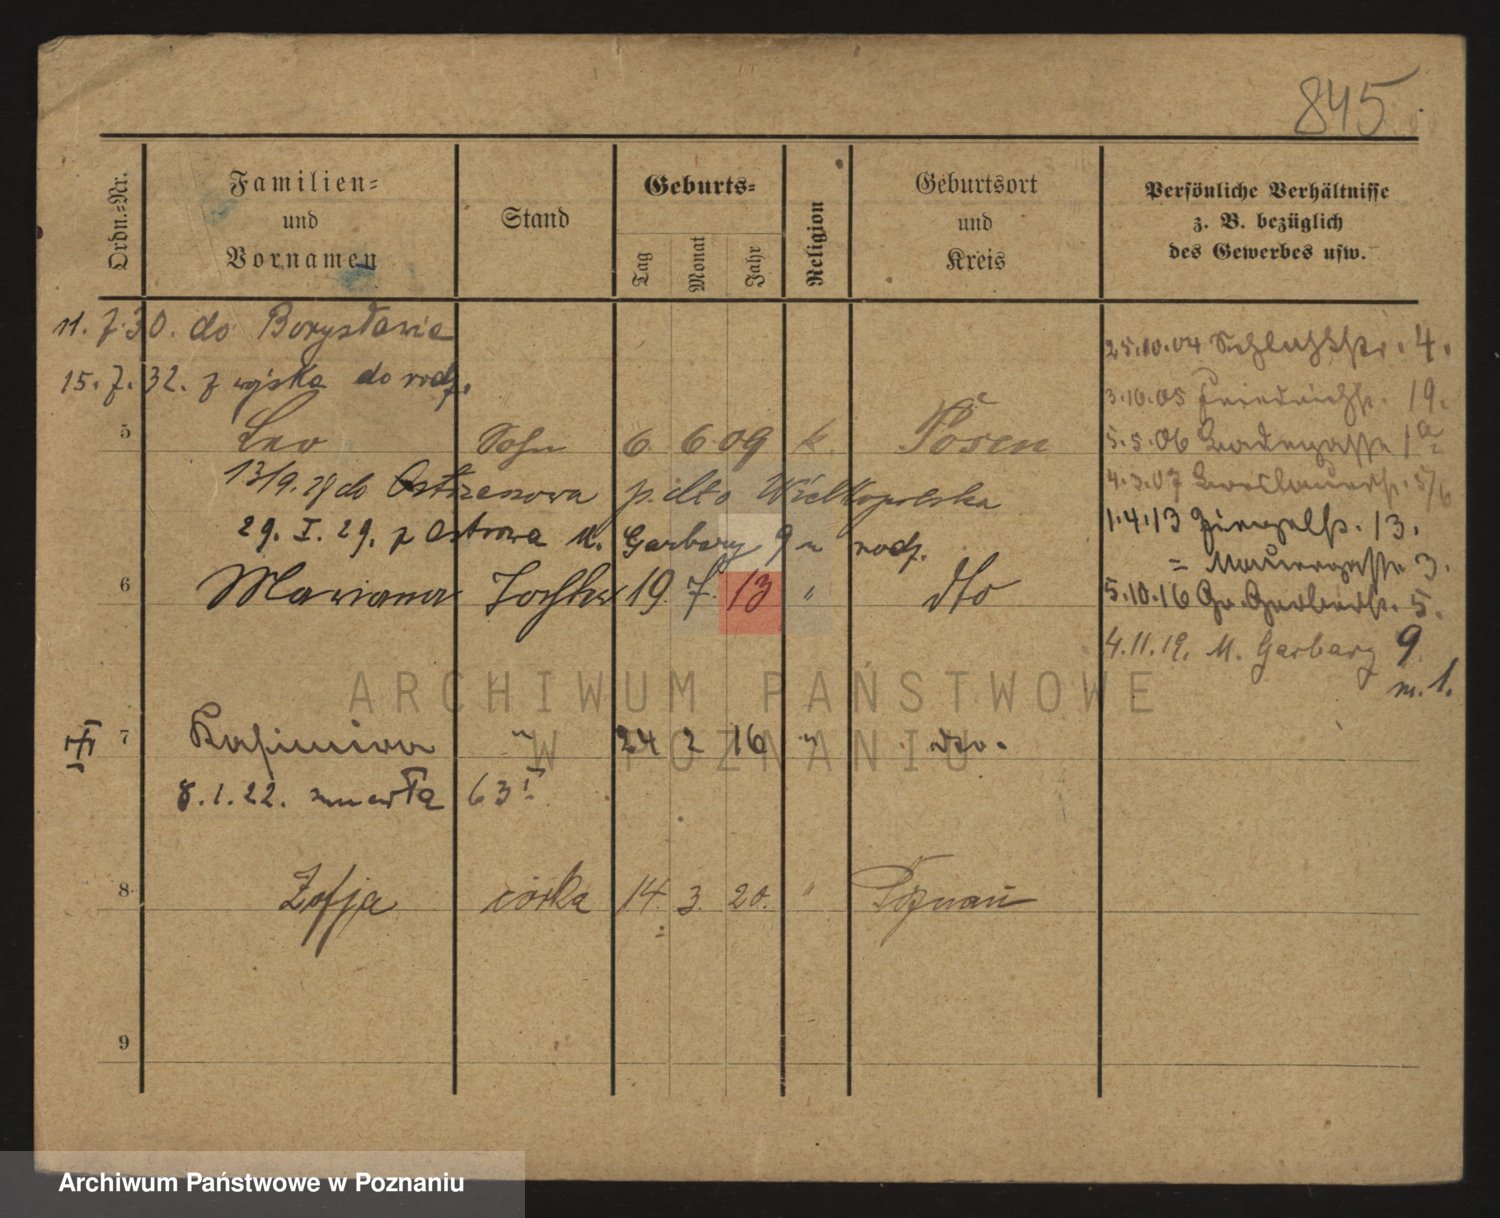 845
Ordn.-Nr.
Familien-
und
Vornamen
Stand
Geburts-
Tag
Monat
Jahr
Religion
Geburtsort
und
Kreis
Persönliche Verhältnisse
z. B. bezüglich
des Gewerbes usw.
11. 7. 30. do Borysławia
15. 7. 32. z wojska do rodz.
5 Leo Sohn 6. 6 09 k. Posen
13/9. do p. dto Wielkopolska
29. I. 29. z Ostrowa M. Garbary 9 u rodz.
6 Mariana Tochter 19. 7. 13 " dto
7 Kasimira " 24 2 16 " dto.
8. 1. 22. zmarła 63 I
8 Zofja córka 14. 3. 20. " Poznań
9
25.10.04 4.
3.10.05 Friedrichstr. 19.
5.5.06 1a
4.3.07 Breslauerstr. 5/6
1.4.13 13.
= Mauergasse 3.
5.10.16 Gr. Gerberstr. 5.
4.11.19. M. Garbary 9
m. 1.
ARCHIWUM PAŃSTWOWE
W POZNANIU
Archiwum Państwowe w Poznaniu